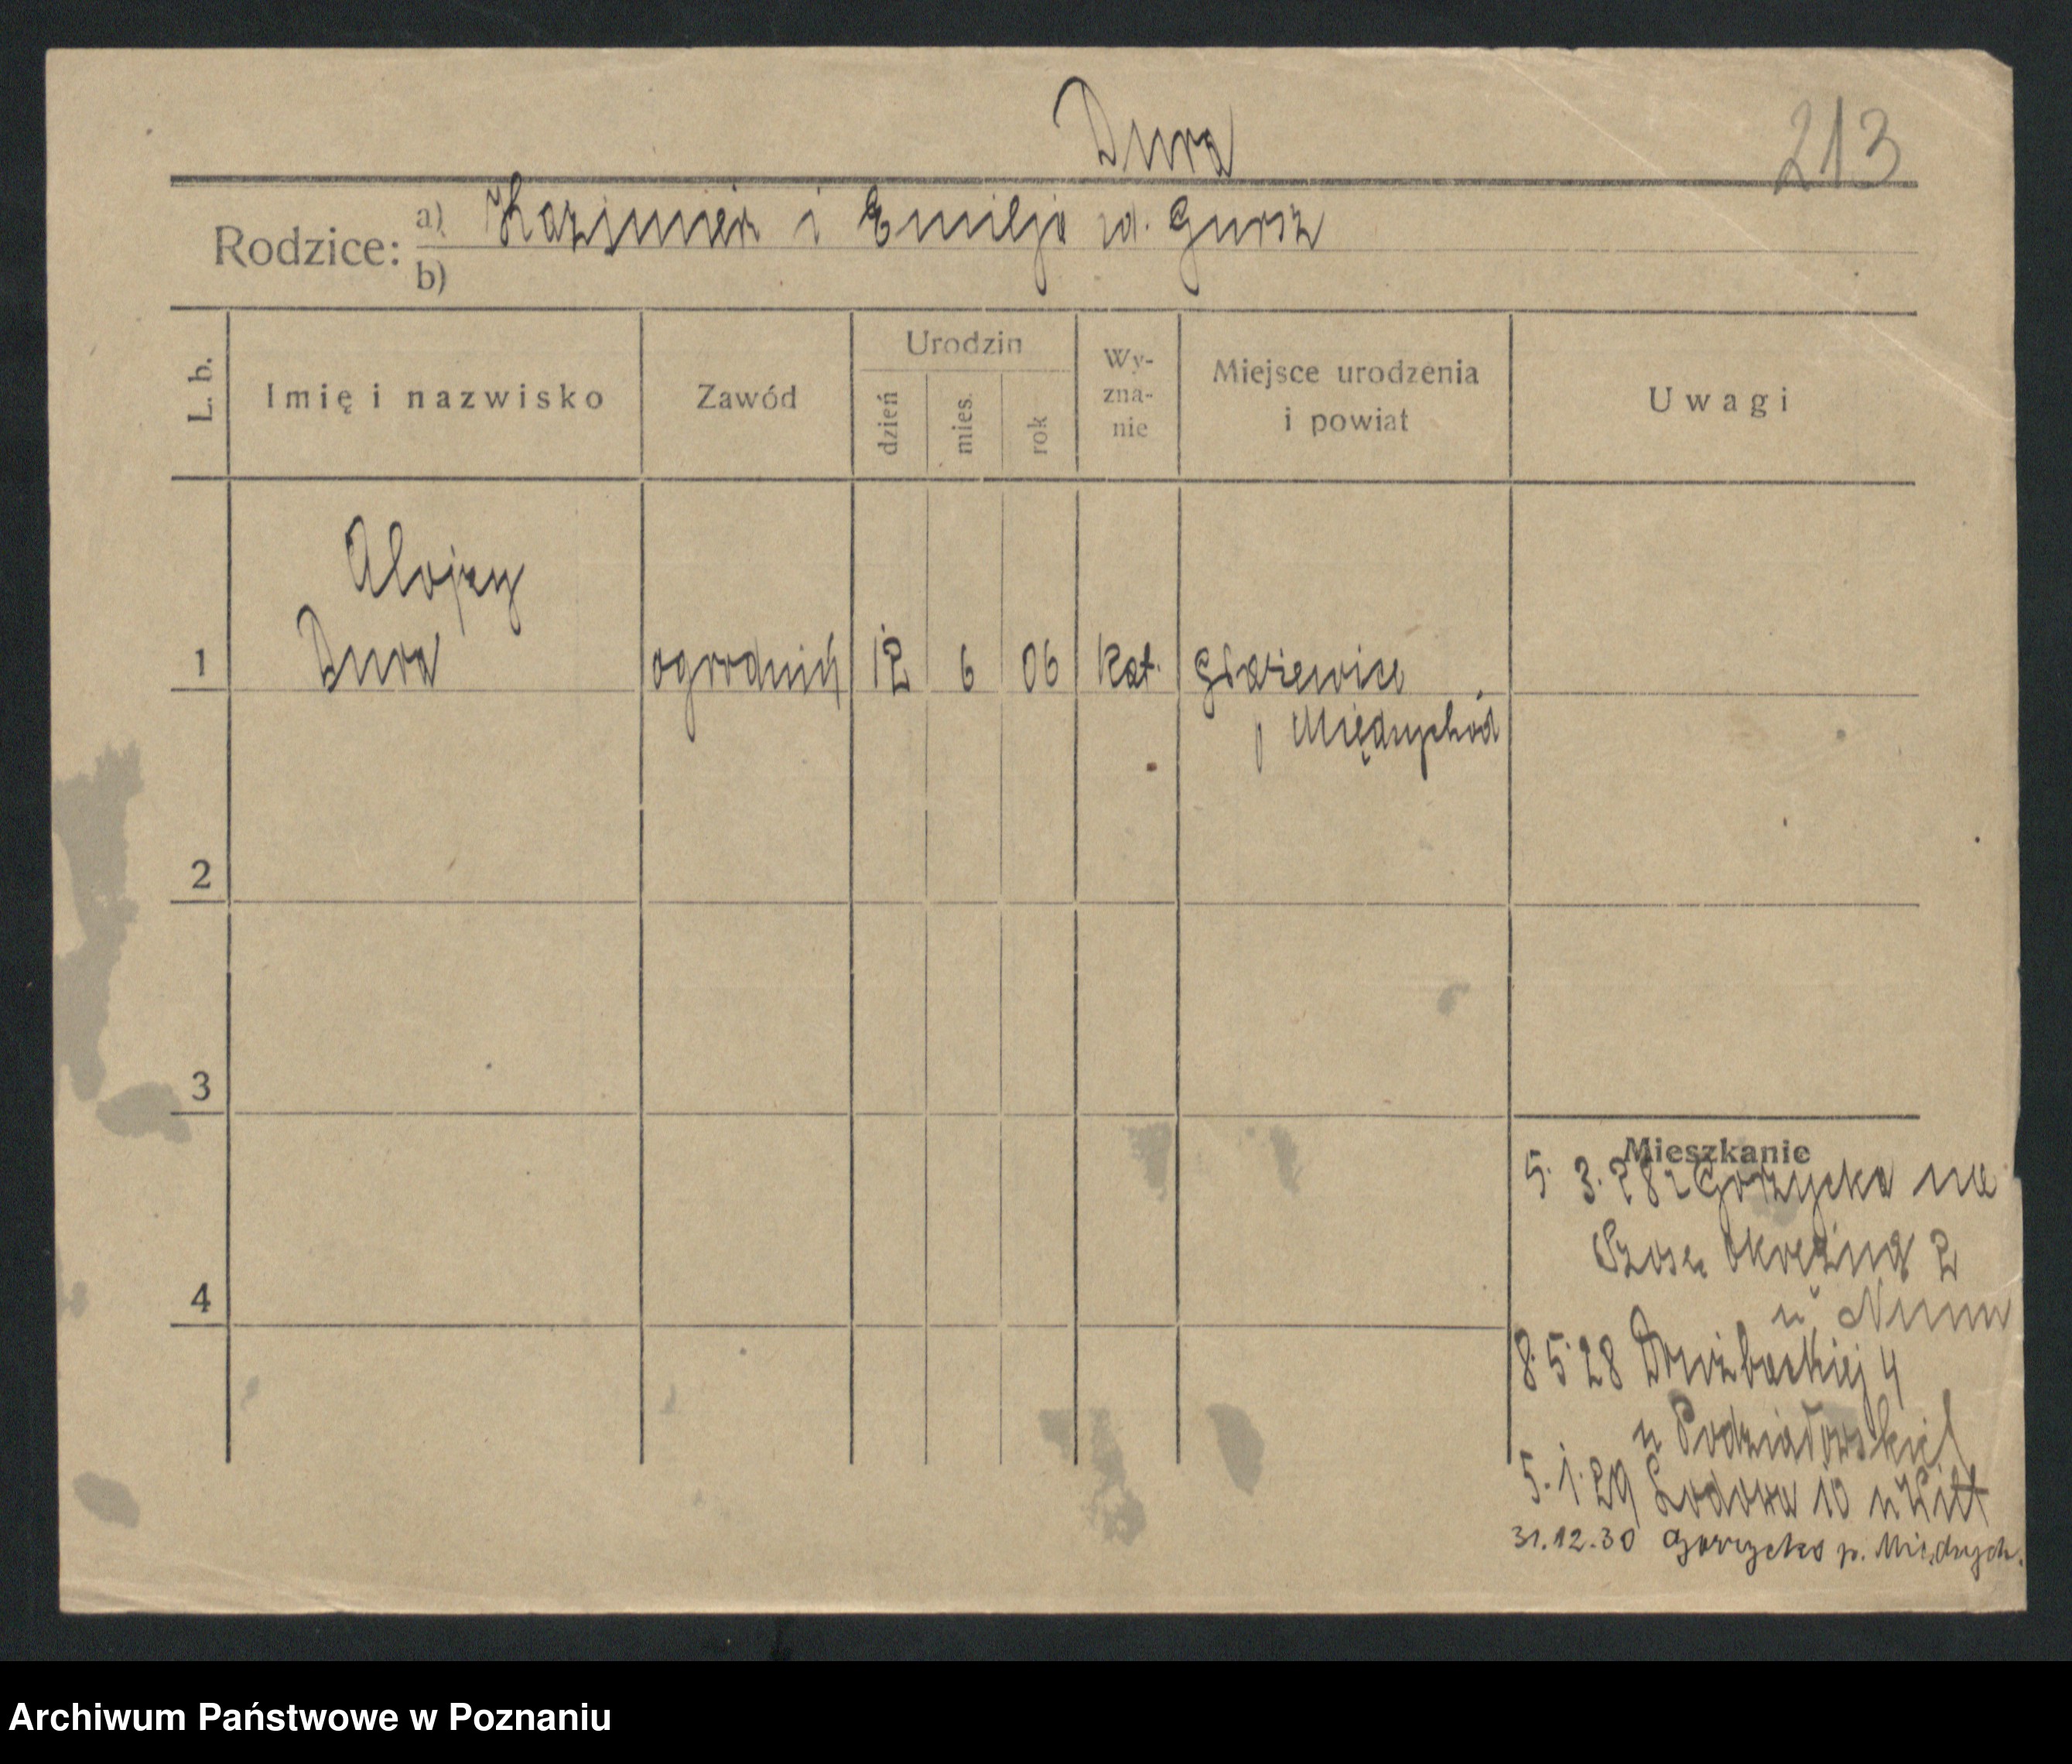 Dura
213
Rodzice: a) Kazimierz i Emilja zd. Gursz
b)
L. b. Imię i nazwisko Zawód Urodzin dzień mies. rok Wy-zna-nie Miejsce urodzenia i powiat Uwagi
Alojzy
1 Dura ogrodnik 12 6 06 kat.
p Międzychód
2
3
Mieszkanie
5. 3. 28 z Gorzycka na
Szosa Okrężna 2
u
4
8.5.28 Drużbackiej 4
u Podziadowskiej
5.1.29 Łodowa 10 u
31.12.30 Gorzycko p. Międzych.
Archiwum Państwowe w Poznaniu